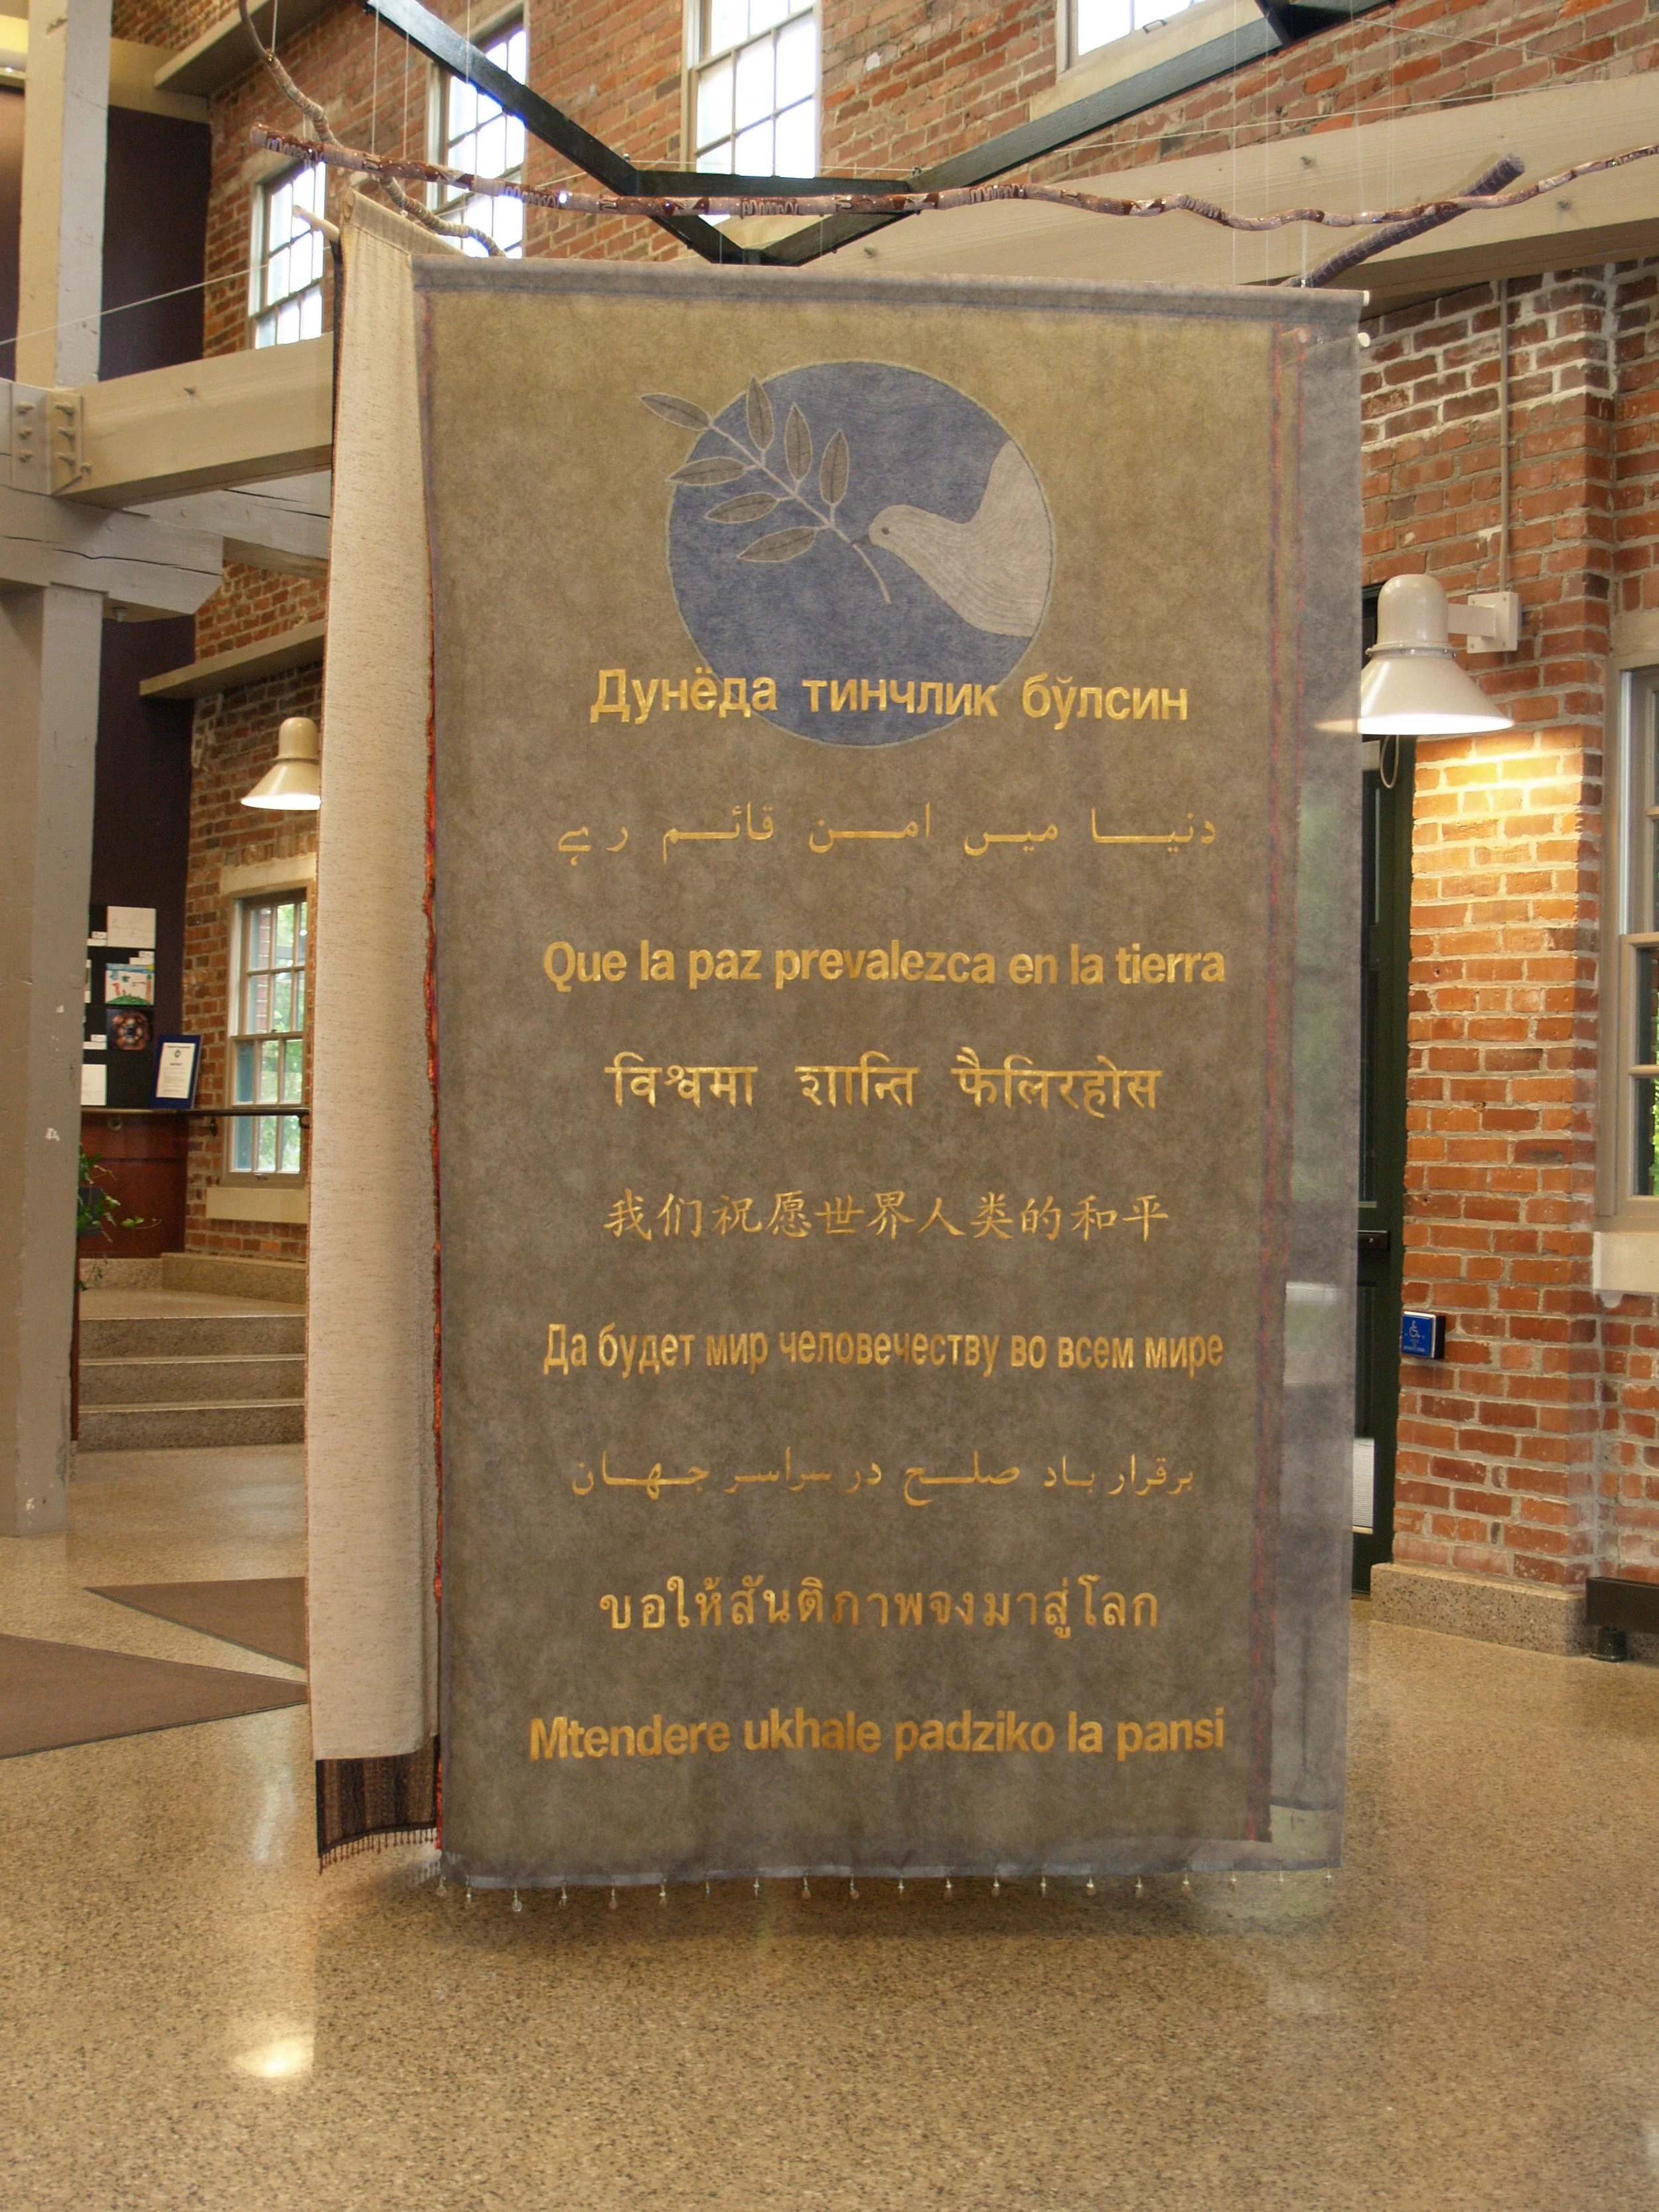 Дунёда тинчлик бўлсин
دنیا میں امن قائم رہے
Que la paz prevalezca en la tierra
विश्वमा शान्ति फैलिरहोस
我们祝愿世界人类的和平
Да будет мир человечеству во всем мире
برقرار باد صلح در سراسر جهان
ขอให้สันติภาพจงมาสู่โลก
Mtendere ukhale padziko la pansi